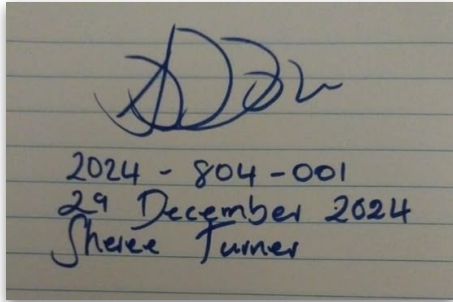 2024 - 804 - 001
29 December 2024
Sheree Turner